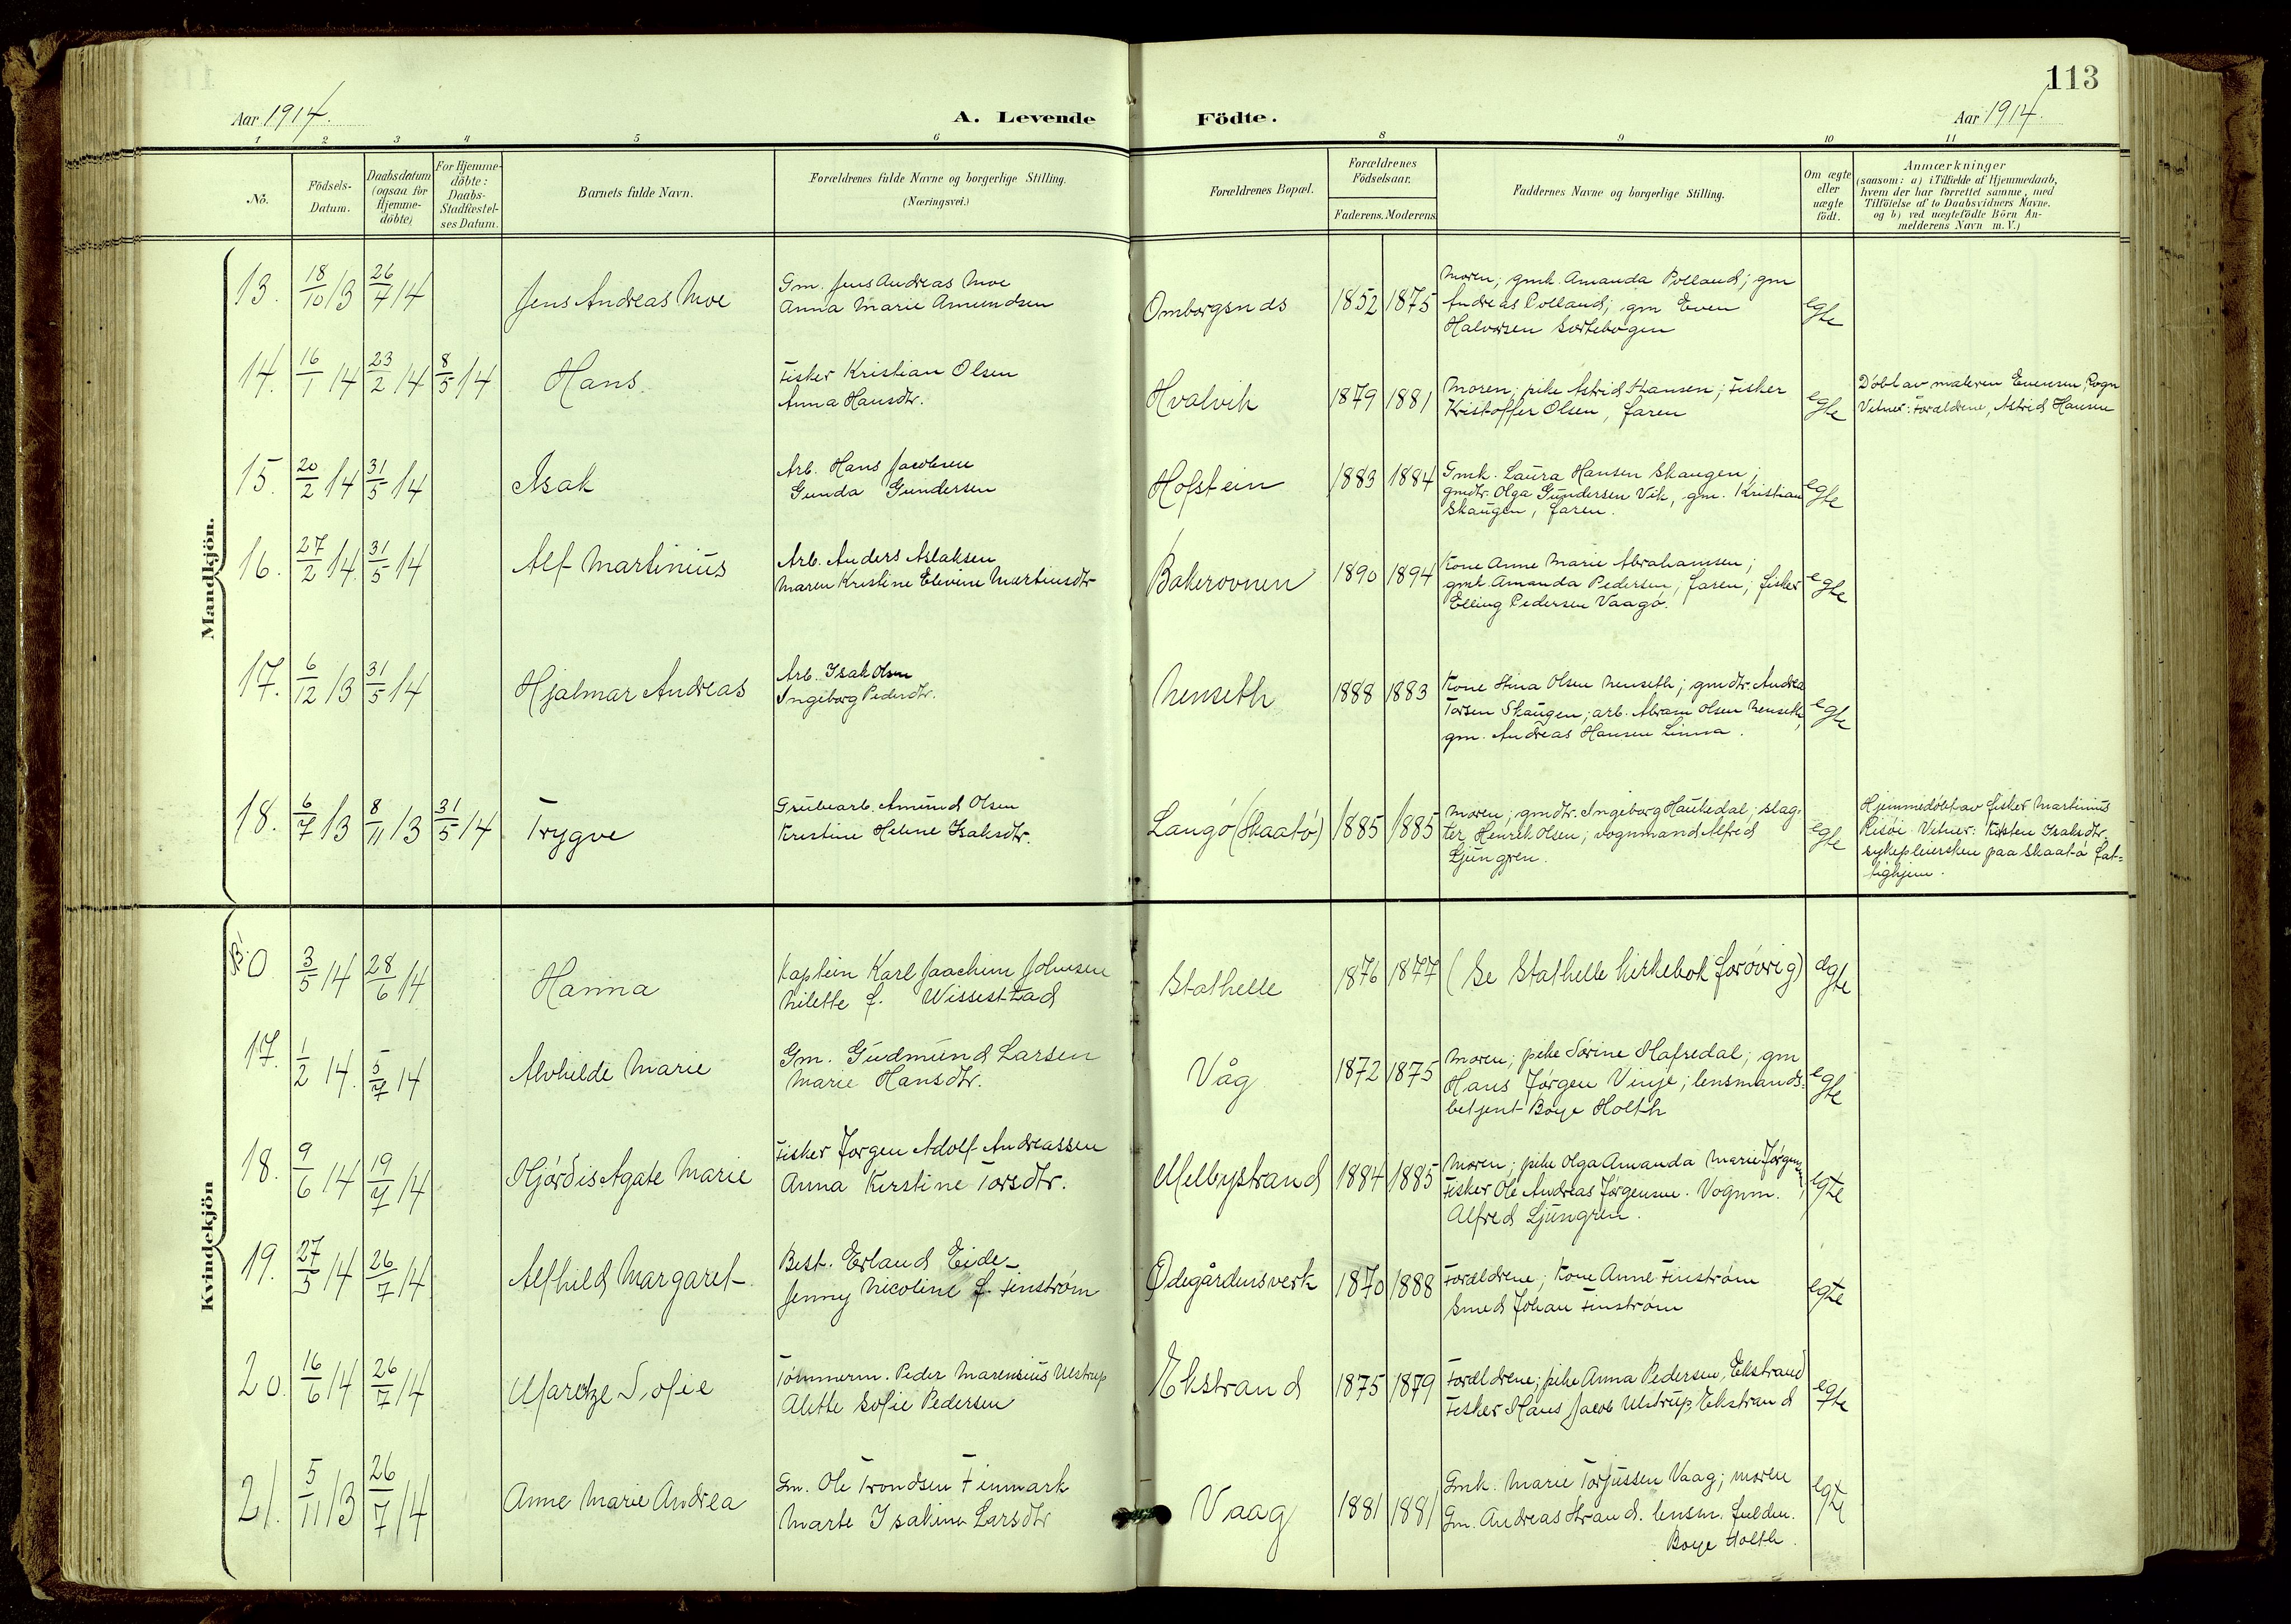 113
Aar 1914.
A. Levende Födte.
Aar 1914.
1 2 3 4 5 6 8 9 10 11
No.
Födsels-
Datum.
Daabsdatum
(ogsaa for
Hjemme-
döbte)
For Hjemme-
döbte:
Daabs-
Stadfæstel-
ses Datum.
Barnets fulde Navn.
Forældrenes fulde Navne og borgerlige Stilling.
(Næringsvei.)
Forældrenes Bopæl.
Forældrenes
Födselsaar.
Faderens. Moderens.
Faddernes Navne og borgerlige Stilling.
Om ægte
eller
uægte
födt.
Anmærkninger
(saasom: a) i Tilfælde af Hjemmedaab,
hvem der har forrettet samme, med
Tilföielse af to Daabsvidners Navne.
og b) ved uægtefödte Börn An-
melderens Navn m.V.)
Mandkjön.
13. 18/10 13 26/4 14 Jens Andreas Moe
Gm. Jens Andreas Moe
Anna Marie Amundsen
Omborgsnds 1852 1875
Moren; gmk. Amanda Polland; gm
Andreas Polland; gm Even
Halvorsen Sortebogen
egte
14. 16/1 14 23/2 14 8/5 14 Hans
Fisker Kristian Olsen
Anna Hansdtr.
Hvalvik 1879 1881
Moren; pike Astrid Hansen; Fisker
Kristoffer Olsen, faren
egte
Døbt av maleren Evensen,
Vitner: Forældrene, Astrid Hansen
15. 20/2 14 31/5 14 Isak
Arb. Hans Jacobsen
Gunda Gundersen
Hofstein 1883 1884
Gmk. Laura Hansen Skaugen;
gmdtr. Olga Gundersen Vik, gm. Kristian
Skaugen, faren.
egte
16. 27/2 14 31/5 14 Alf Martinius
Arb. Anders Aslaksen
Maren Kristine Elevine Martinsdtr
Bakerovnen 1890 1894
Kone Anne Marie Abrahamsen;
gmk. Amanda Pedersen, faren; fisker
Elling Pedersen Vaagø.
egte
17. 6/12 13 31/5 14 Hjalmar Andreas
Arb. Isak Olsen
Ingeborg Pedersdtr.
Nenseth 1888 1883
Kone Stina Olsen Nenseth; gmdtr. Andrea
Torsen Skaugen; arb. Abram Olsen Nenseth,
gm. Andreas Hansen Linna.
egte
18. 6/7 13 8/11 13 31/5 14 Trygve
Grubearb. Amund Olsen
Kristine Helene Isaksdtr.
Langø (Skaatø) 1885 1885
Moren; gmdtr. Ingeborg Haukedal; slag-
ter Henrik Olsen; vognmand Alfred
Ljungren.
egte
Hjemmedøbt av fisker Martinius
Risøi. Vitner: Kirsten Isaksdtr.
sykepleiersken paa Skaatø fat-
tighjem.
Kvindekjön
0 3/5 14 28/6 14 Hanna
Kaptein Karl Joachim Johnsen
Milette f. Wissestad
Stathelle 1876 1877
(Se Stathelle kirkebok forøvrig)
egte
17. 1/2 14. 5/7 14 Alvhilde Marie
Gm. Gudmund Larsen
Marie Hansdtr.
Våg 1872 1875
Moren; pike Sørine Hafredal; gm
Hans Jørgen Vinje; lensmands-
betjent Boye Holth
egte
18. 9/6 14 19/7 14 Hjørdis Agate Marie
Fisker Jørgen Adolf Andreassen
Anna Kirstine Torsdtr.
Melbystrand 1884 1885
Moren; pike Olga Amanda Marie Jørgensen;
Fisker Ole Andreas Jørgensen. Vognm.
Alfred Ljungren.
egte
19. 27/5 14 26/7 14 Alfhild Margaret
Best. Erland Eide
Jenny Nicoline f. Finstrøm
Ødegårdensverk 1870 1888
Forældrene; Kone Anne Finstrøm
Smed Johan Finstrøm
egte
20. 16/6 14 26/7 14 Maretze Sofie
Tømmerm. Peder Marensius Ulstrup
Alette Sofie Pedersen
Ekstrand 1875 1879
Forældrene; pike Anna Pedersen, Ekstrand
Fisker Hans Jacob Ulstrup, Ekstrand
egte
21. 5/11 13 26/7 14 Anne Marie Andrea
Gm. Ole Trondsen Finmark
Marte Isakine Larsdtr
Vaag 1881 1881
Gmk. Marie Torjussen Vaag; moren
Gm. Andreas Strand. lensm. fuldm.
Boye Holth.
egte